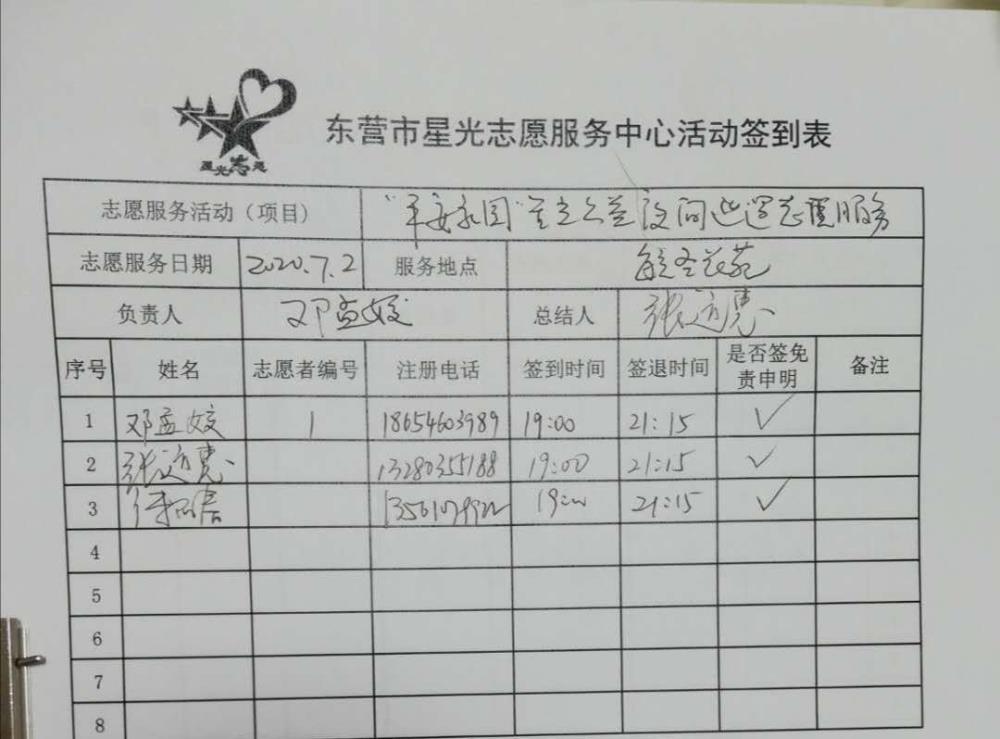 星光志愿
东营市星光志愿服务中心活动签到表
志愿服务活动（项目） "平安家园"星光公益夜间巡逻志愿服务
志愿服务日期 2020.7.2 服务地点 花苑
负责人 邓孟姣 总结人 张道惠
序号 姓名 志愿者编号 注册电话 签到时间 签退时间 是否签免责申明 备注
1 邓孟姣 1 18654603989 19:00 21:15 ✓
2 张道惠 13280355188 19:00 21:15 ✓
3 19:00 21:15 ✓
4
5
6
7
8